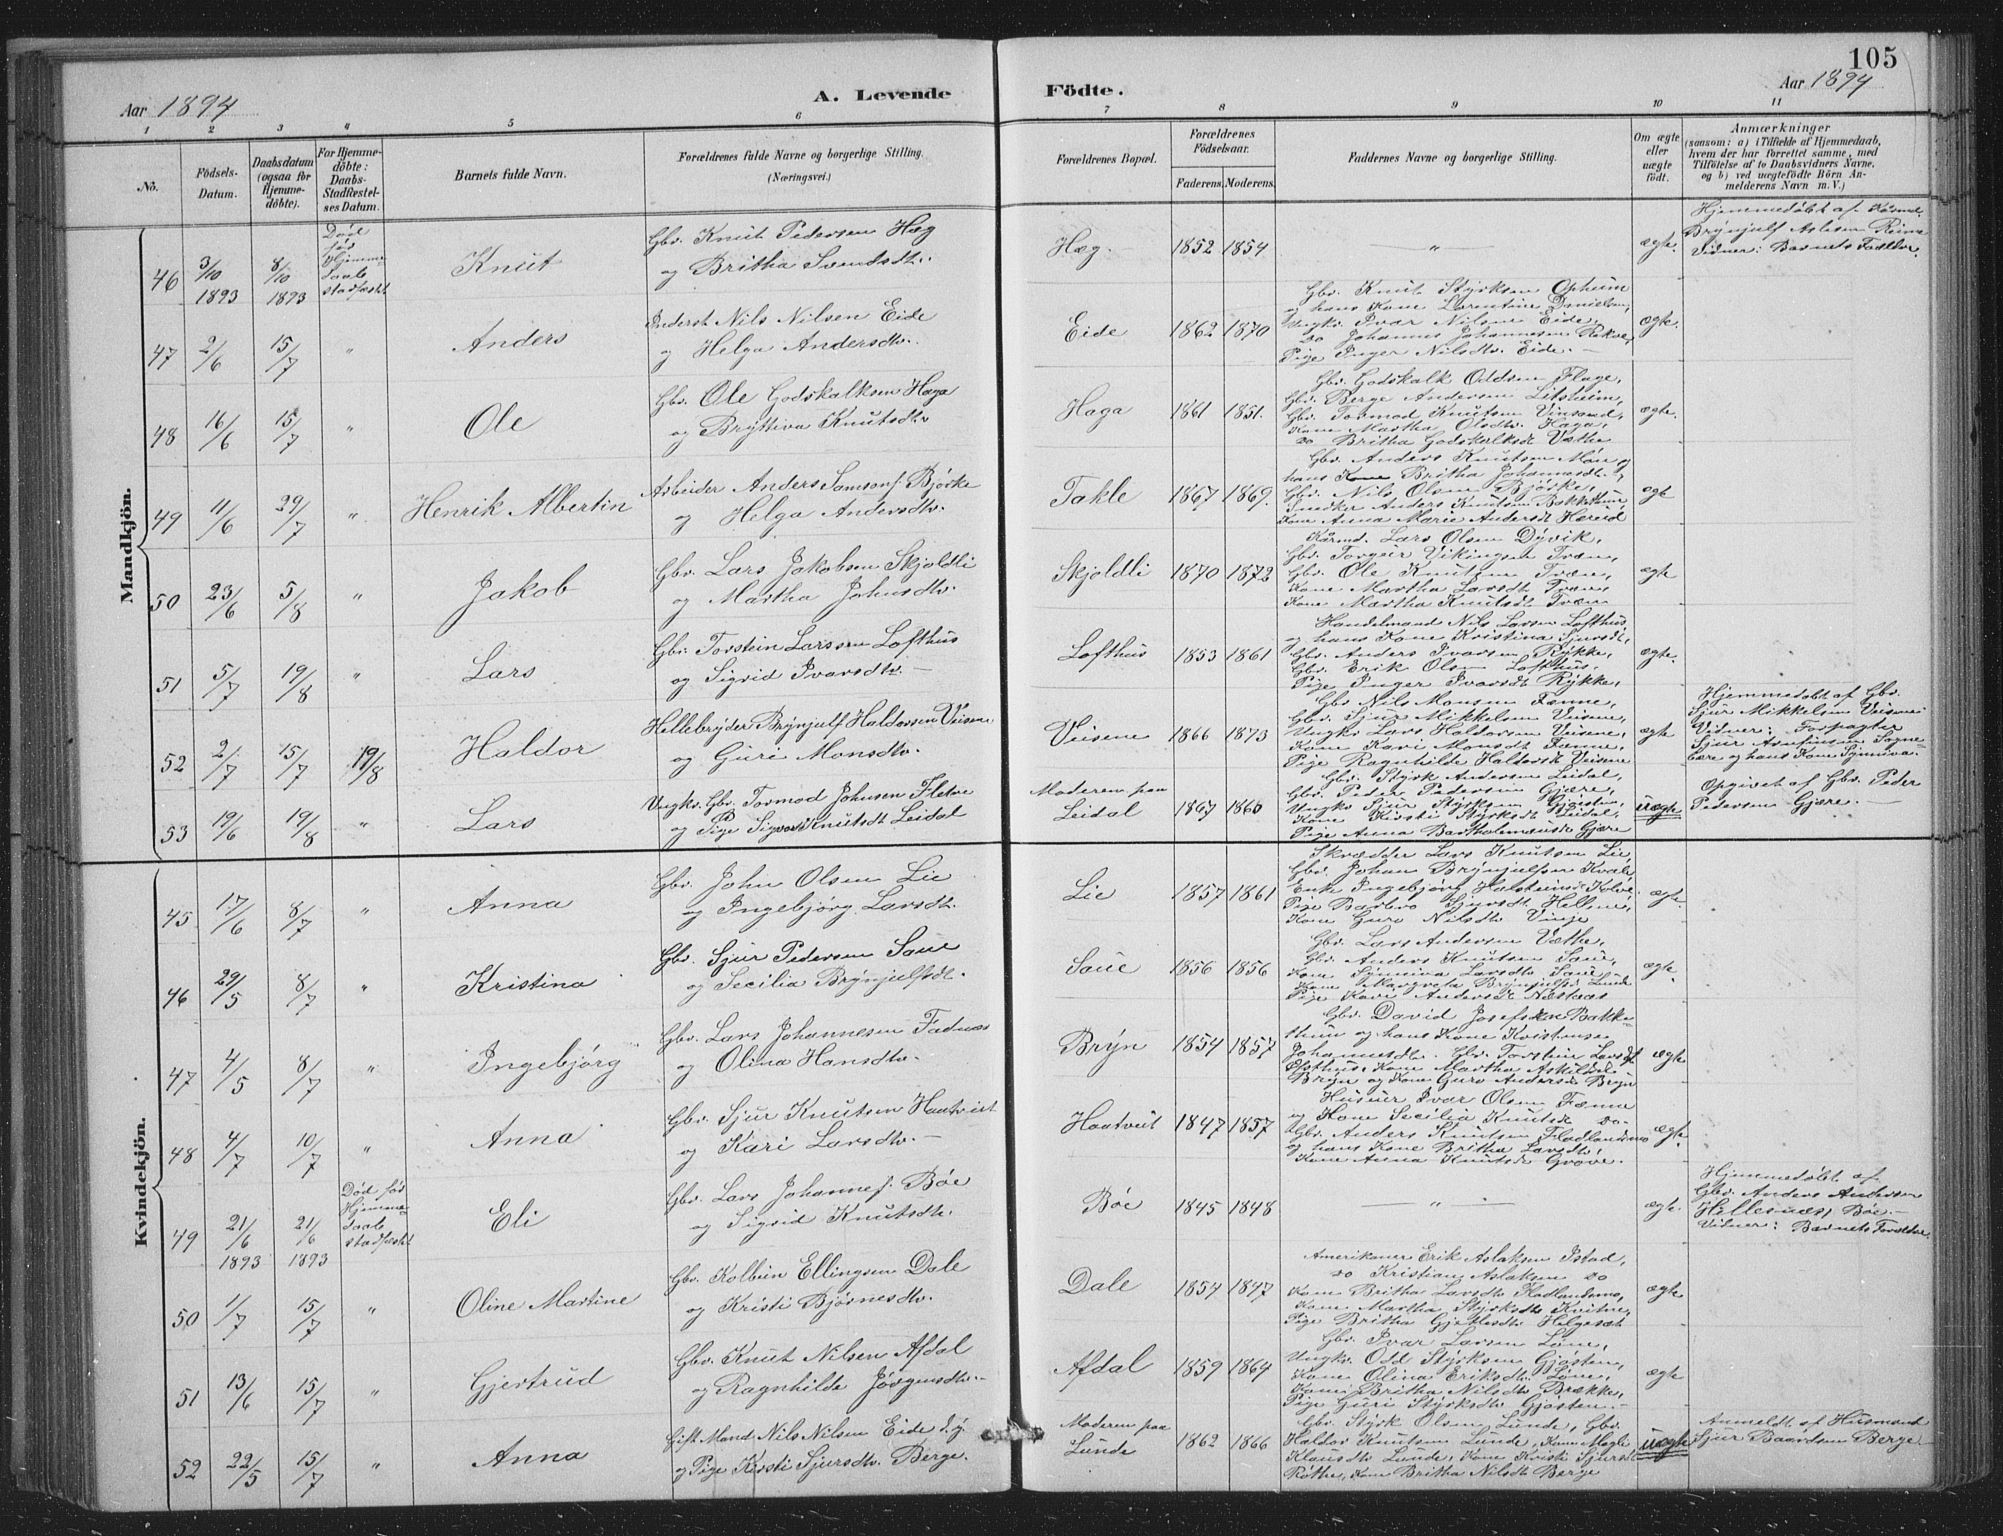 105
Aar 1894
A. Levende
Födte.
Aar 1894
1 2 3 " 5 6 7 8 9 10 11
No.
Födsels-Datum.
Daabsdatum (ogsaa for Hjemme-döbte).
For Hjemme-döbte: Daabs-Stadfæstel-ses Datum.
Barnets fulde Navn.
Forældrenes fulde Navne og borgerlige Stilling.
(Næringsvei.)
Forældrenes Bopæl.
Forældrenes Födselsaar.
Faderens. Moderens.
Faddernes Navne og borgerlige Stilling.
Om ægte eller uægte födt.
Anmærkninger
(saasom: a) i Tilfælde af Hjemmedaab, hvem der har forrettet samme, med Tilföielse af to Daabsvidners Navne, og b) ved uægtefödte Börn An-melderens Navn m. V.)
Mandkjön.
46 3/10 1893 8/10 1893 Död før Hjemme-daabs stadfæst Knut
Gbr. Knut Pedersen Hæg
og Britha Svendsdtr.
Hæg. 1852 1854 " ægte.
Hjemmedøbt af Kårmd.
Brynjulf Aslesen Reime
Vidner: Barnets Fadder.
47 2/6 15/7 " Anders
Inderst Nils Nilsen Eide
og Helga Andersdtr.
Eide 1862 1870
Gbr. Knut Styrksen Opheim
og hans Kone Larentine Danielsen,
Ungk. Ivar Nilsen Eide,
do Johannes Johannesen Rekve,
Pige Inger Nilsdtr. Eide.
ægte.
48 16/6 15/7 " Ole
Gbr. Ole Godskalksen Haga
og Bryttiva Knutsdtr
Haga 1861 1851.
Gbr. Godskalk Oddsen Flage,
Gbr. Berge Andersen Litsheim,
Gbr. Tormod Knutsen Vinsand,
Kone Martha Olsdtr. Haga,
do Britha Godskalksdt Væthe
ægte.
49 11/6 29/7 " Henrik Albertin
Arbeider Anders Samsons. Bjørke
og Helga Andersdtr.
Takle 1867 1869.
Gbr. Anders Knutsen Møn og
hans Kone Britha Johannesdt.,
Gbr. Nils Olsen Bjørke,
Snedker Anders Knutsen Bakkethun,
Kone Anna Marie Andersdt Hæreid
ægte
50 23/6 5/8 " Jakob
Gbr. Lars Jakobsen Skjoldli
og Martha Johnsdtr.
Skjoldli 1870 1872
Kårmd. Lars Olsen Dyvik,
Gbr. Torgeir Vikingsen Tvæn,
Gbr. Ole Knutsen Tvæn,
Kone Martha Larsdt Tvæn,
Kone Martha Knutsdt Tvæn
ægte
51 5/7 19/8 " Lars
Gbr. Torstein Larssen Lofthus
og Sigrid Ivarsdtr.
Lofthus 1853 1861
Handelsmand Nils Larsen Lofthus
og hans Kone Kristina Sjursdt,
Gbr. Anders Ivarsen Rykke,
Gbr. Erik Olsen Lofthus,
Pige Inger Ivarsdt Rykke,
ægte.
52 2/7 15/7 19/8 Haldor
Hellebryder Brynjulf Haldorsen Veisene
og Guri Monsdtr.
Veisene 1866 1873
Gbr Nils Monsen Fenne,
Gbr. Sjur Mikkelsen Veisene,
Ungk. Lars Haldorsen Veisene,
Kone Kari Monsdt Fenne,
Pige Ragnhilde Haldorsdt Veisene
ægte
Hjemmedøbt af Gbr.
Sjur Mikkelsen Veisene
Vidner: Forpagter
Sjur
og hans Kone Synneva
53 19/6 19/8 " Lars
Ungk. Gbr. Tormod Johnsen Fletre
og Pige Sigvor Knutsdt Leidal
Moderen paa
Leidal 1867 1860
Gbr. Styrk Andersen Leidal,
Gbr. Peder Pedersen Gjære,
Ungk. Sjur Styrksen Gjøsten,
Kone Kirsti Styrksdt Leidal,
Pige Anna Bartholomeusdt Gjære
uægte
Opgivet af Gbr. Peder
Pedersen Gjære.
Kvindekjön.
45 17/6 8/7 " Anna
Gbr. John Olsen Lie
og Ingebjørg Larsdt.
Lie 1857 1861
Skrædder Lars Knutsen Lie,
Gbr. Johan Brynjulfsen Kvale,
Enke Ingebjørg Halsteinsdt Kolve,
Pige Barbro Sjursdt Helsne,
Kone Guro Nilsdtr Vinje
ægte.
46 29/5 8/7 " Kristina
Gbr. Sjur Pedersen Saue
og Secilia Brynjulfsdt.
Saue 1856 1856
Gbr. Lars Andersen Væthe,
Gbr. Anders Knutsen Saue,
Kone Synneva Larsdtr. Saue
Kone Margreta Brynjulfsdt Lunde
Pige Kari Andersdt
ægte.
47 4/5 8/7 " Ingebjørg
Gbr. Lars Johannesen Fadnæs
og Olina Hansdtr.
Bryn 1854 1857
Gbr. David Josefsen Bakke-
thun og hans Kone Kristense
Johannesdt. Gbr. Torstein Larssen
Østhus, Kone Martha Askildsdt
Bryn og Kone Guro Andersdt Bryn
ægte
48 4/7 10/7 " Anna
Gbr. Sjur Knutsen Haatveit
og Kari Larsdtr.
Haatveit 1847 1857
Husmr. Ivar Olsen Fenne
og Kone Secilia Knutsdt do.
Gbr. Anders Knutsen Fladlandsmo
og hans Kone Britha Larsdtr
Kone Anna Knutsdt Grove.
ægte
49 21/6 1893 21/6 1893 Død før Hjemme-daabs stadfæst Eli
Gbr. Lars Johannes. Bøe
og Sigrid Knutsdtr.
Bøe 1845 1848 " ægte.
Hjemmedøbt af
Gbr. Anders Andersen
Hellesnes, Bøe.
Vidner: Barnets Forældre
50 1/7 15/7 " Oline Martine
Gbr. Kolbein Ellingsen Dale
og Kristi Bjørnesdtr.
Dale 1854 1847
Amerikaner Erik Aslaksen Istad,
do Kristian Aslaksen do
Kone Britha Larsdt Fladlandsmo,
Kone Martha Styrksdt Kvitne,
Pige Britha Gjertsdtr Helgeset
ægte
51 13/6 15/7 " Gjertrud
Gbr. Knut Nilsen Afdal
og Ragnhilde Jørgensdtr.
Afdal 1859 1864
Gbr. Ivar Larsen Løne,
Ungk. Odd Styrksen Gjøsten,
Kone Olina Eriksdt. Løne,
Kone Britha Nilsdtr Brække,
Pige Guri Styrksdtr Gjøsten.
ægte
52 22/5 15/7 " Anna
Gift Mand Nils Nilsen Eide d.y.
og Pige Kirsti Sjursdtr. Berge.
Moderen paa
Lunde 1862 1866
Gbr. Styrk Olsen Lunde, Gbr.
Haldor Knutsen Lunde, Kone Magli
Klausdtr Lunde, Kone Kristi Sjursdt
Røthe, Kone Britha Nilsdt Berge
uægte
Anmeldt af Husmand
Sjur Baardsen Berge.